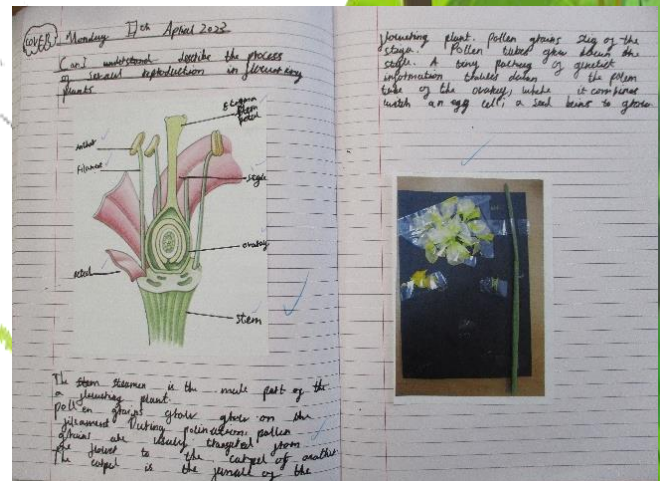 COVER
Monday 17th April 2023
Can I understand describe the process
of sexual reproduction in flowering
plants
Stigma
stem
petal
anther
filament
style
ovary
petal
stem
The stem stamen is the male part of the
a flowering plant.
pollen grains grow grow on the
filament During polination, pollen
grains are usaly from
one flower to the carpel of another.
The carpel is the female of the
flowering plant. Pollen grains the
Pollen tubes grow down the
style. A tiny of genetict
information down the pollen
tube of the ovary, where it combines
with an egg cell, a seed to grow